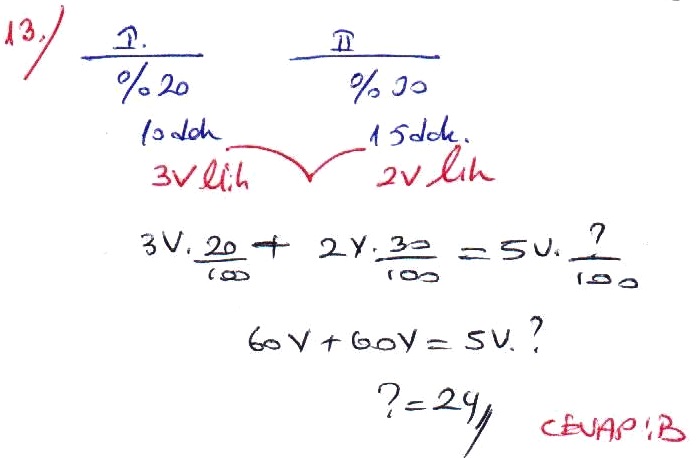 13.) I. II
%20 %30
10 ddk 15 ddk.
3V lik 2V lik
3V. 20/100 + 2V. 30/100 = 5V. ?/100
60V + 60V = 5V. ?
? = 24
CEVAP: B